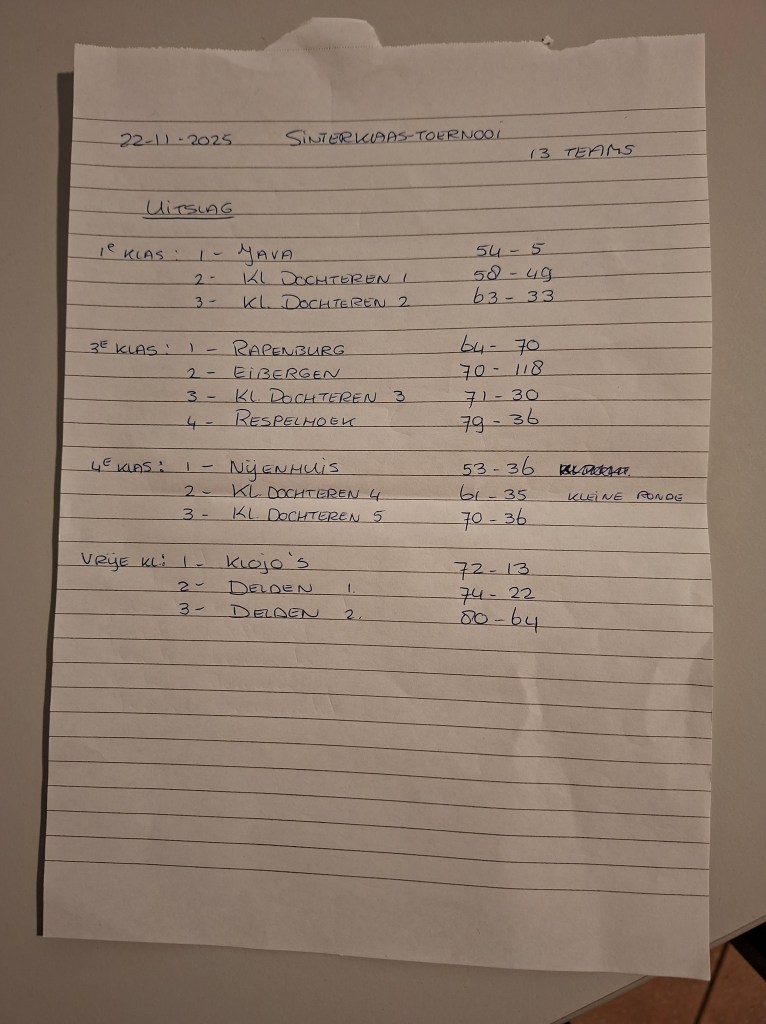 22-11-2025 SINTERKLAAS-TOERNOOI
13 TEAMS
UITSLAG
1E KLAS: 1 - JAVA 54 - 5
2 - KL DOCHTEREN 1 58 - 49
3 - KL. DOCHTEREN 2 63 - 33
3E KLAS: 1 - RAPENBURG 64 - 70
2 - EIBERGEN 70 - 118
3 - KL DOCHTEREN 3 71 - 30
4 - RESPELHOEK 79 - 36
4E KLAS: 1 - NIJENHUIS 53 - 36
2 - KL DOCHTEREN 4 61 - 35 KLEINE RONDE
3 - KL DOCHTEREN 5 70 - 36
VRIJE KL: 1 - KLOJO'S 72 - 13
2 - DELDEN 1. 74 - 22
3 - DELDEN 2. 80 - 64